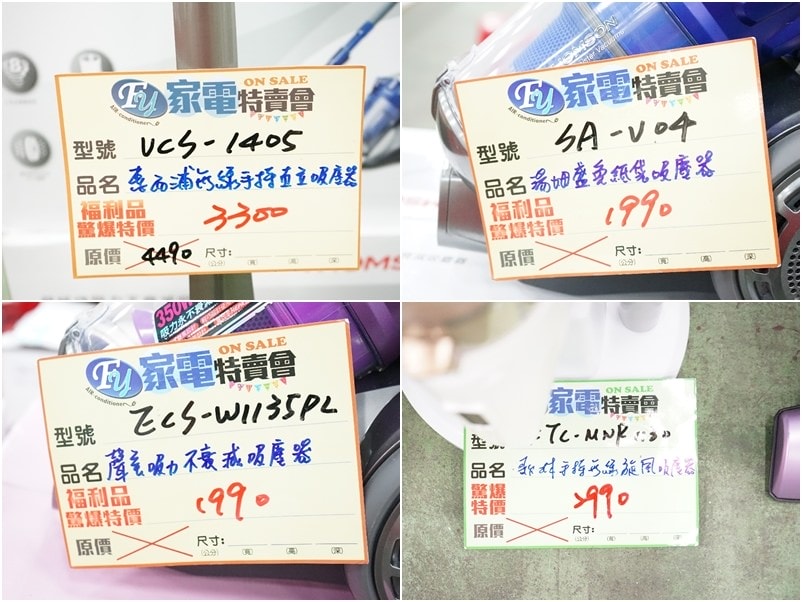 FY 家電特賣會 ON SALE
Air conditioner
型號 VCS-1405
品名 惠而浦無線手持直立吸塵器
福利品
驚爆特價 3300
原價 4490 尺寸:
(公分) (寬) (高) (深)
FY 家電特賣會 ON SALE
Air conditioner
型號 SA-V04
品名 湯姆盛免紙袋吸塵器
福利品
驚爆特價 1990
原價 尺寸:
(公分) (寬) (高) (深)
350W
吸力永不衰
FY 家電特賣會 ON SALE
Air conditioner
型號 ECS-W1135PL
品名 聲寶吸力不衰減吸塵器
福利品
驚爆特價 1990
原價 尺寸:
(公分) (寬) (高) (深)
家電特賣會 ON SALE
型號 TC-MNK
品名 手持無線旋風吸塵器
驚爆
特價 2990
原價 尺寸:
(公分) (寬) (高) (深)